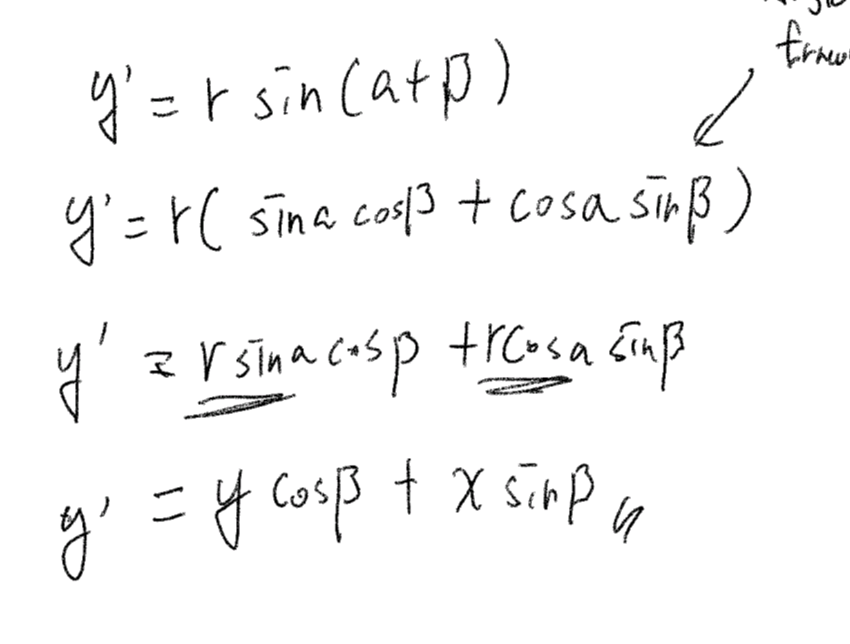 y' = r sin(a+β)
y' = r( sina cosβ + cosa sinβ )
y' = r sina cosβ + r cosa sinβ
y' = y cosβ + x sinβ